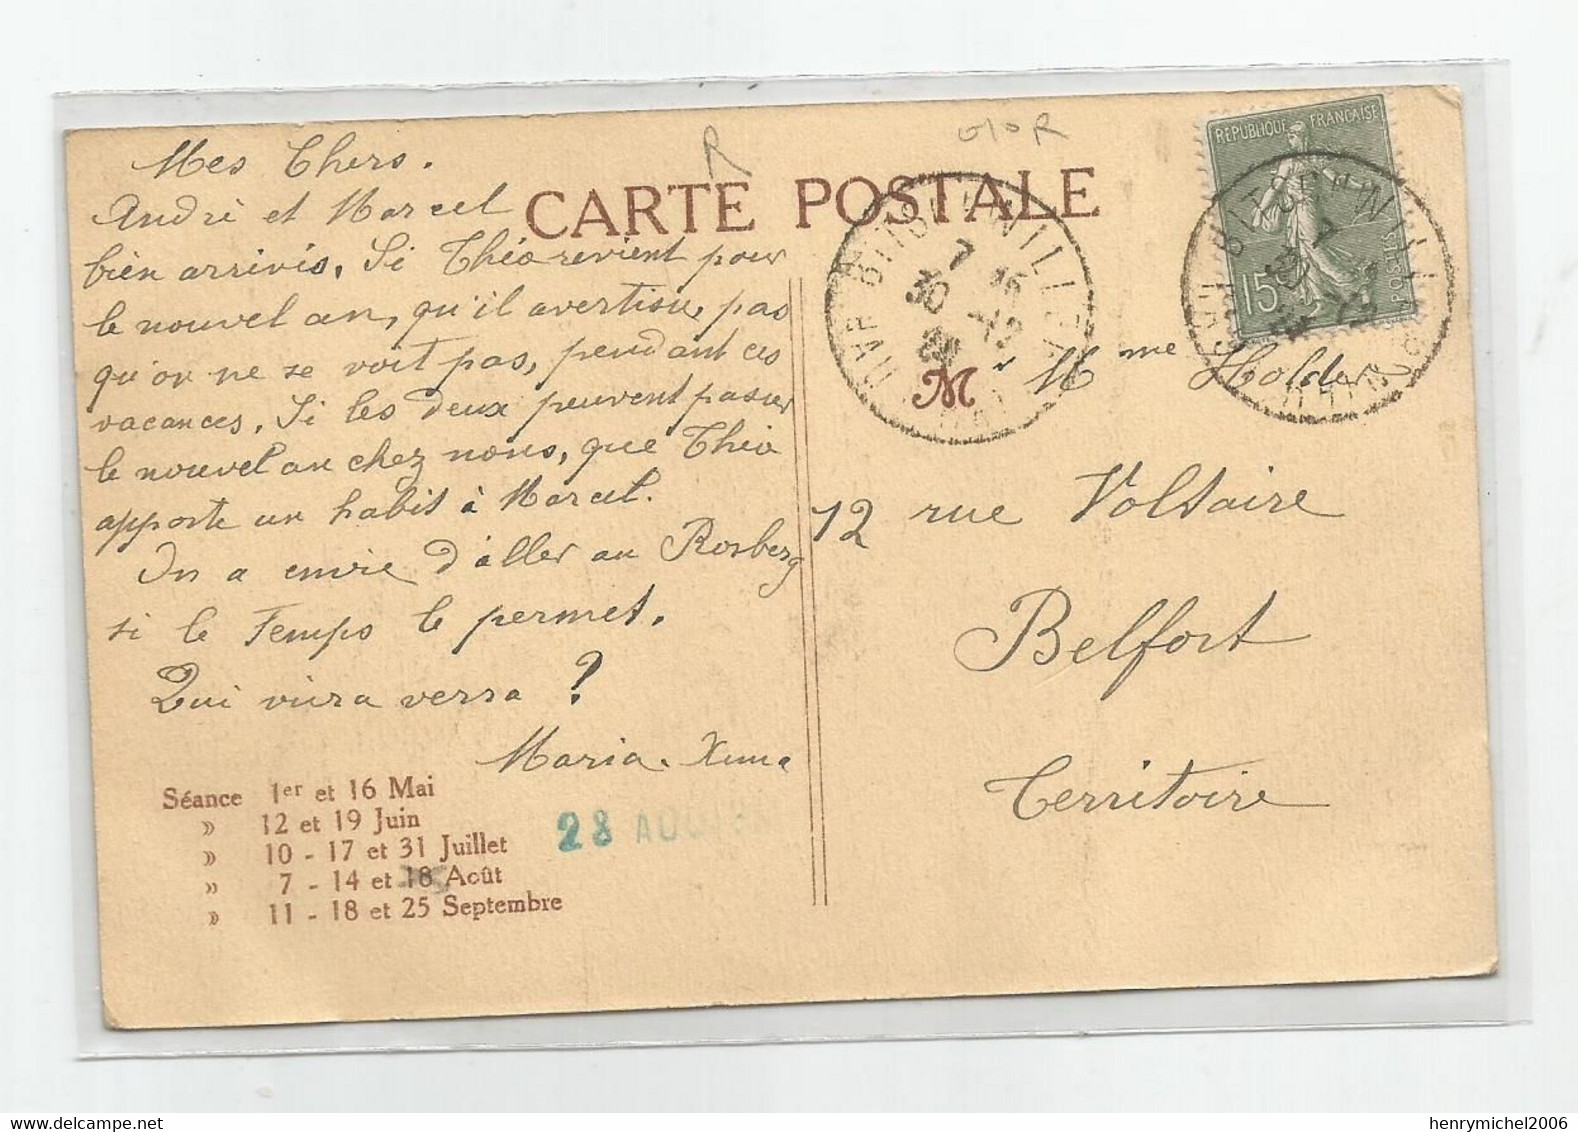 Mes Chers.
André et Marcel
bien arrivés. Si Théo revient pour
le nouvel an, qu'il avertisse, pas
qu'on ne se voit pas, pendant ces
vacances. Si les deux peuvent passer
le nouvel an chez nous, que Théo
apporte un habit à Marcel.
On a envie d'aller au Rosberg
si le Temps le permet.
Qui vivra verra ?
Maria.
Séance 1er et 16 Mai
» 12 et 19 Juin
» 10 - 17 et 31 Juillet
» 7 - 14 et 18 Août
» 11 - 18 et 25 Septembre
28 AOU
CARTE POSTALE
R
REPUBLIQUE FRANÇAISE
15
POSTES
BITSCHWILLER
7 15
30 -12
BITSCHWILLER
M
Mme Holder
12 rue Voltaire
Belfort
Territoire
henrymichel2006